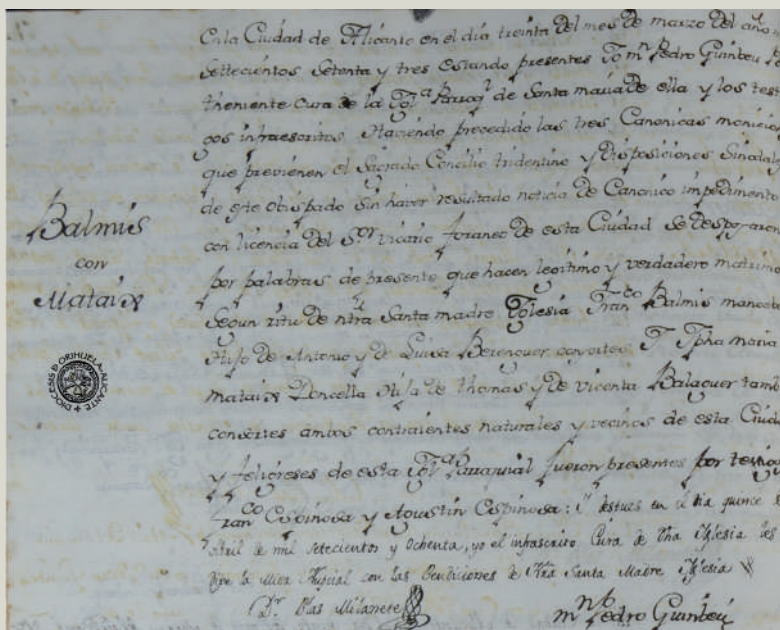 Balmis
con
Mataix
DIOCESIS D ORIHUELA-ALICANTE
En la Ciudad de Alicante en el día treinta del mes de marzo del año
Settecientos Setenta y tres estando presentes Yo mn Pedro Guinbeu
theniente Cura de la Yglª Parroql de Santa maria de ella y los test
gos infraescritos Haviendo precedido las tres Canonicas monicio
que previenen el Sagrado Concilio tridentino y Disposiciones Sinodal
de este Obispado Sin haver resultado noticia de Canonico impedimento
con licencia del Sor vicario foraneo de esta Ciudad Se desposaron
por palabras de presente que hacen legitimo y verdadero matrimo
Segun ritu de ntra Santa madre Yglesia Franco Balmis mancebo
Hijo de Antonio y de Luisa Berenguer consortes Y Jpha maria
mataix Doncella Hija de thomas y de vicenta Balaguer tamb
consortes ambos contraientes naturales y vecinos de esta Ciuda
y feligreses de esta Yglª Parroquial fueron presentes por testigo
Franco Espinosa y Agustin Espinosa: Y despues en el dia quince
Abril de mil setecientos y ochenta, yo el infrascrito Cura de dha Iglesia les
dije la Misa Nupcial con las Bendiciones de Ntra Santa Madre Iglesia
Dr Blas Milanete
mn Pedro Guinbeu